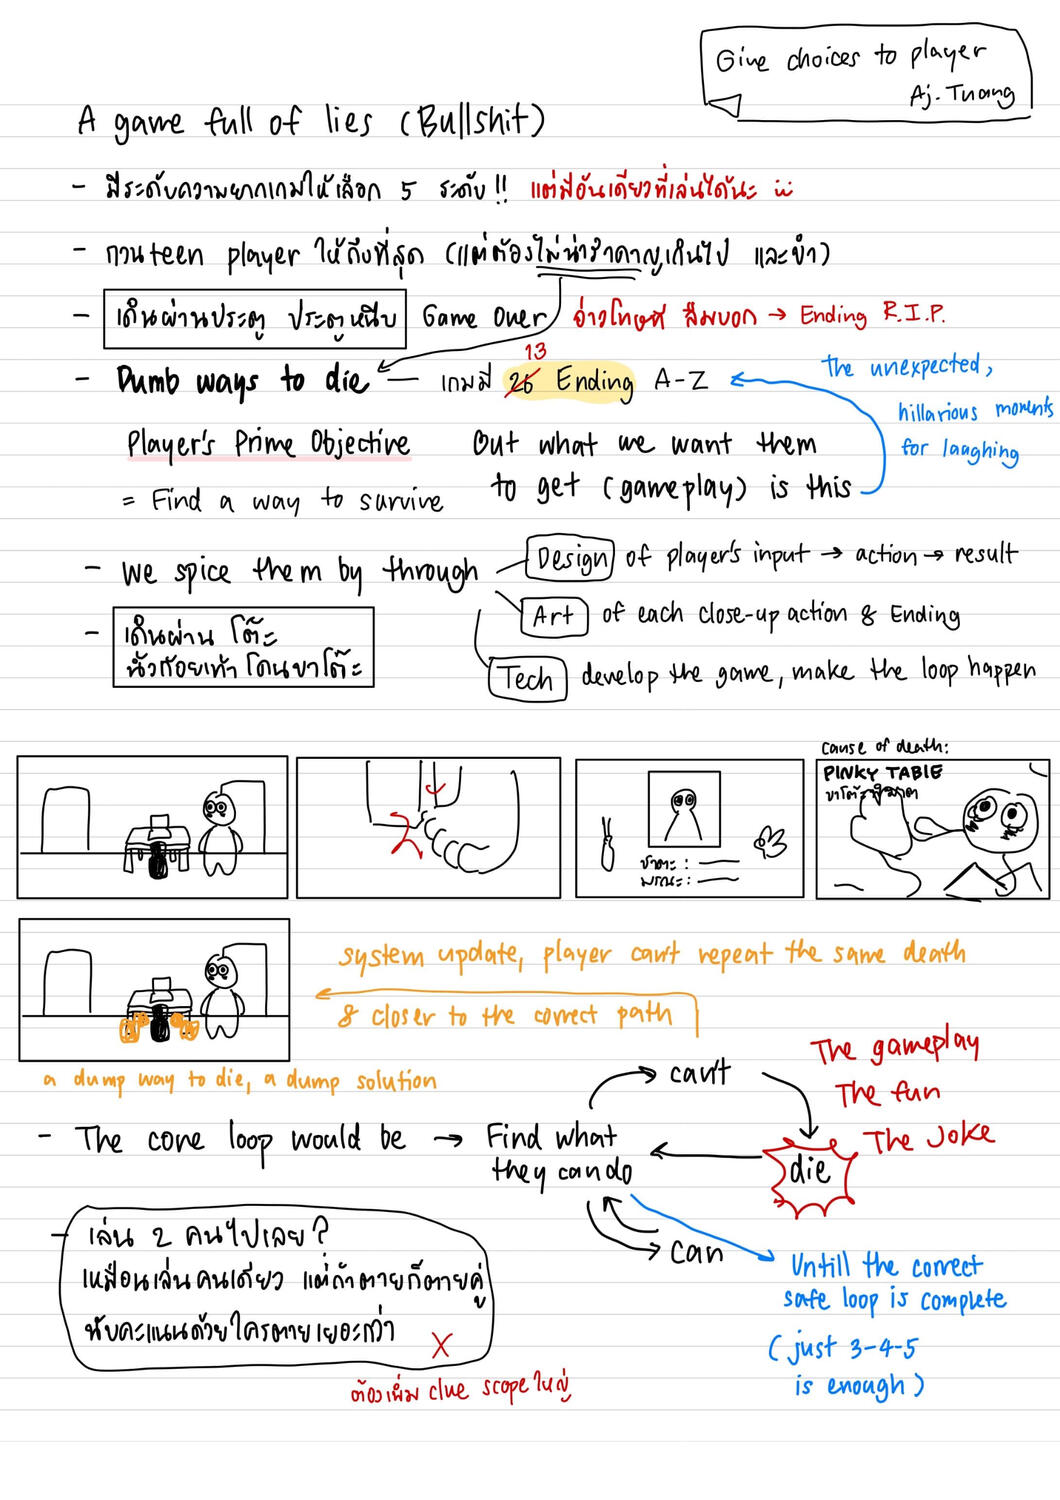 Give choices to player
Aj. Tuang
A game full of lies (Bullshit)
- มีระดับความยากเกมให้เลือก 5 ระดับ!! แต่มีอันเดียวที่เล่นได้นะ
- กวนteen player ให้ถึงที่สุด (แต่ต้องไม่น่ารำคาญเกินไป และขำ)
- เดินผ่านประตู ประตูหนีบ Game Over อ่าวโทษที ลืมบอก → Ending R.I.P.
13
- Dumb ways to die — เกมมี 26 Ending A-Z
The unexpected,
hillarious moments
for laughing
Player's Prime Objective
= Find a way to survive
But what we want them
to get (gameplay) is this
- We spice them by through
Design of player's input → action → result
Art of each close-up action & Ending
Tech develop the game, make the loop happen
- เดินผ่าน โต๊ะ
นิ้วก้อยเท้า โดนขาโต๊ะ
ชาตะ :
มรณะ :
cause of death:
PINKY TABLE
ขาโต๊ะพิฆาต
system update, player can't repeat the same death
& closer to the correct path
a dump way to die, a dump solution
- The core loop would be → Find what
they can do
can't
die
can
The gameplay
The fun
The Joke
Untill the correct
safe loop is complete
(just 3-4-5
is enough)
- เล่น 2 คนไปเลย?
เหมือนเล่นคนเดียว แต่ถ้าตายก็ตายคู่
นับคะแนนด้วยใครตายเยอะกว่า X
ต้องเพิ่ม clue scope ใหญ่